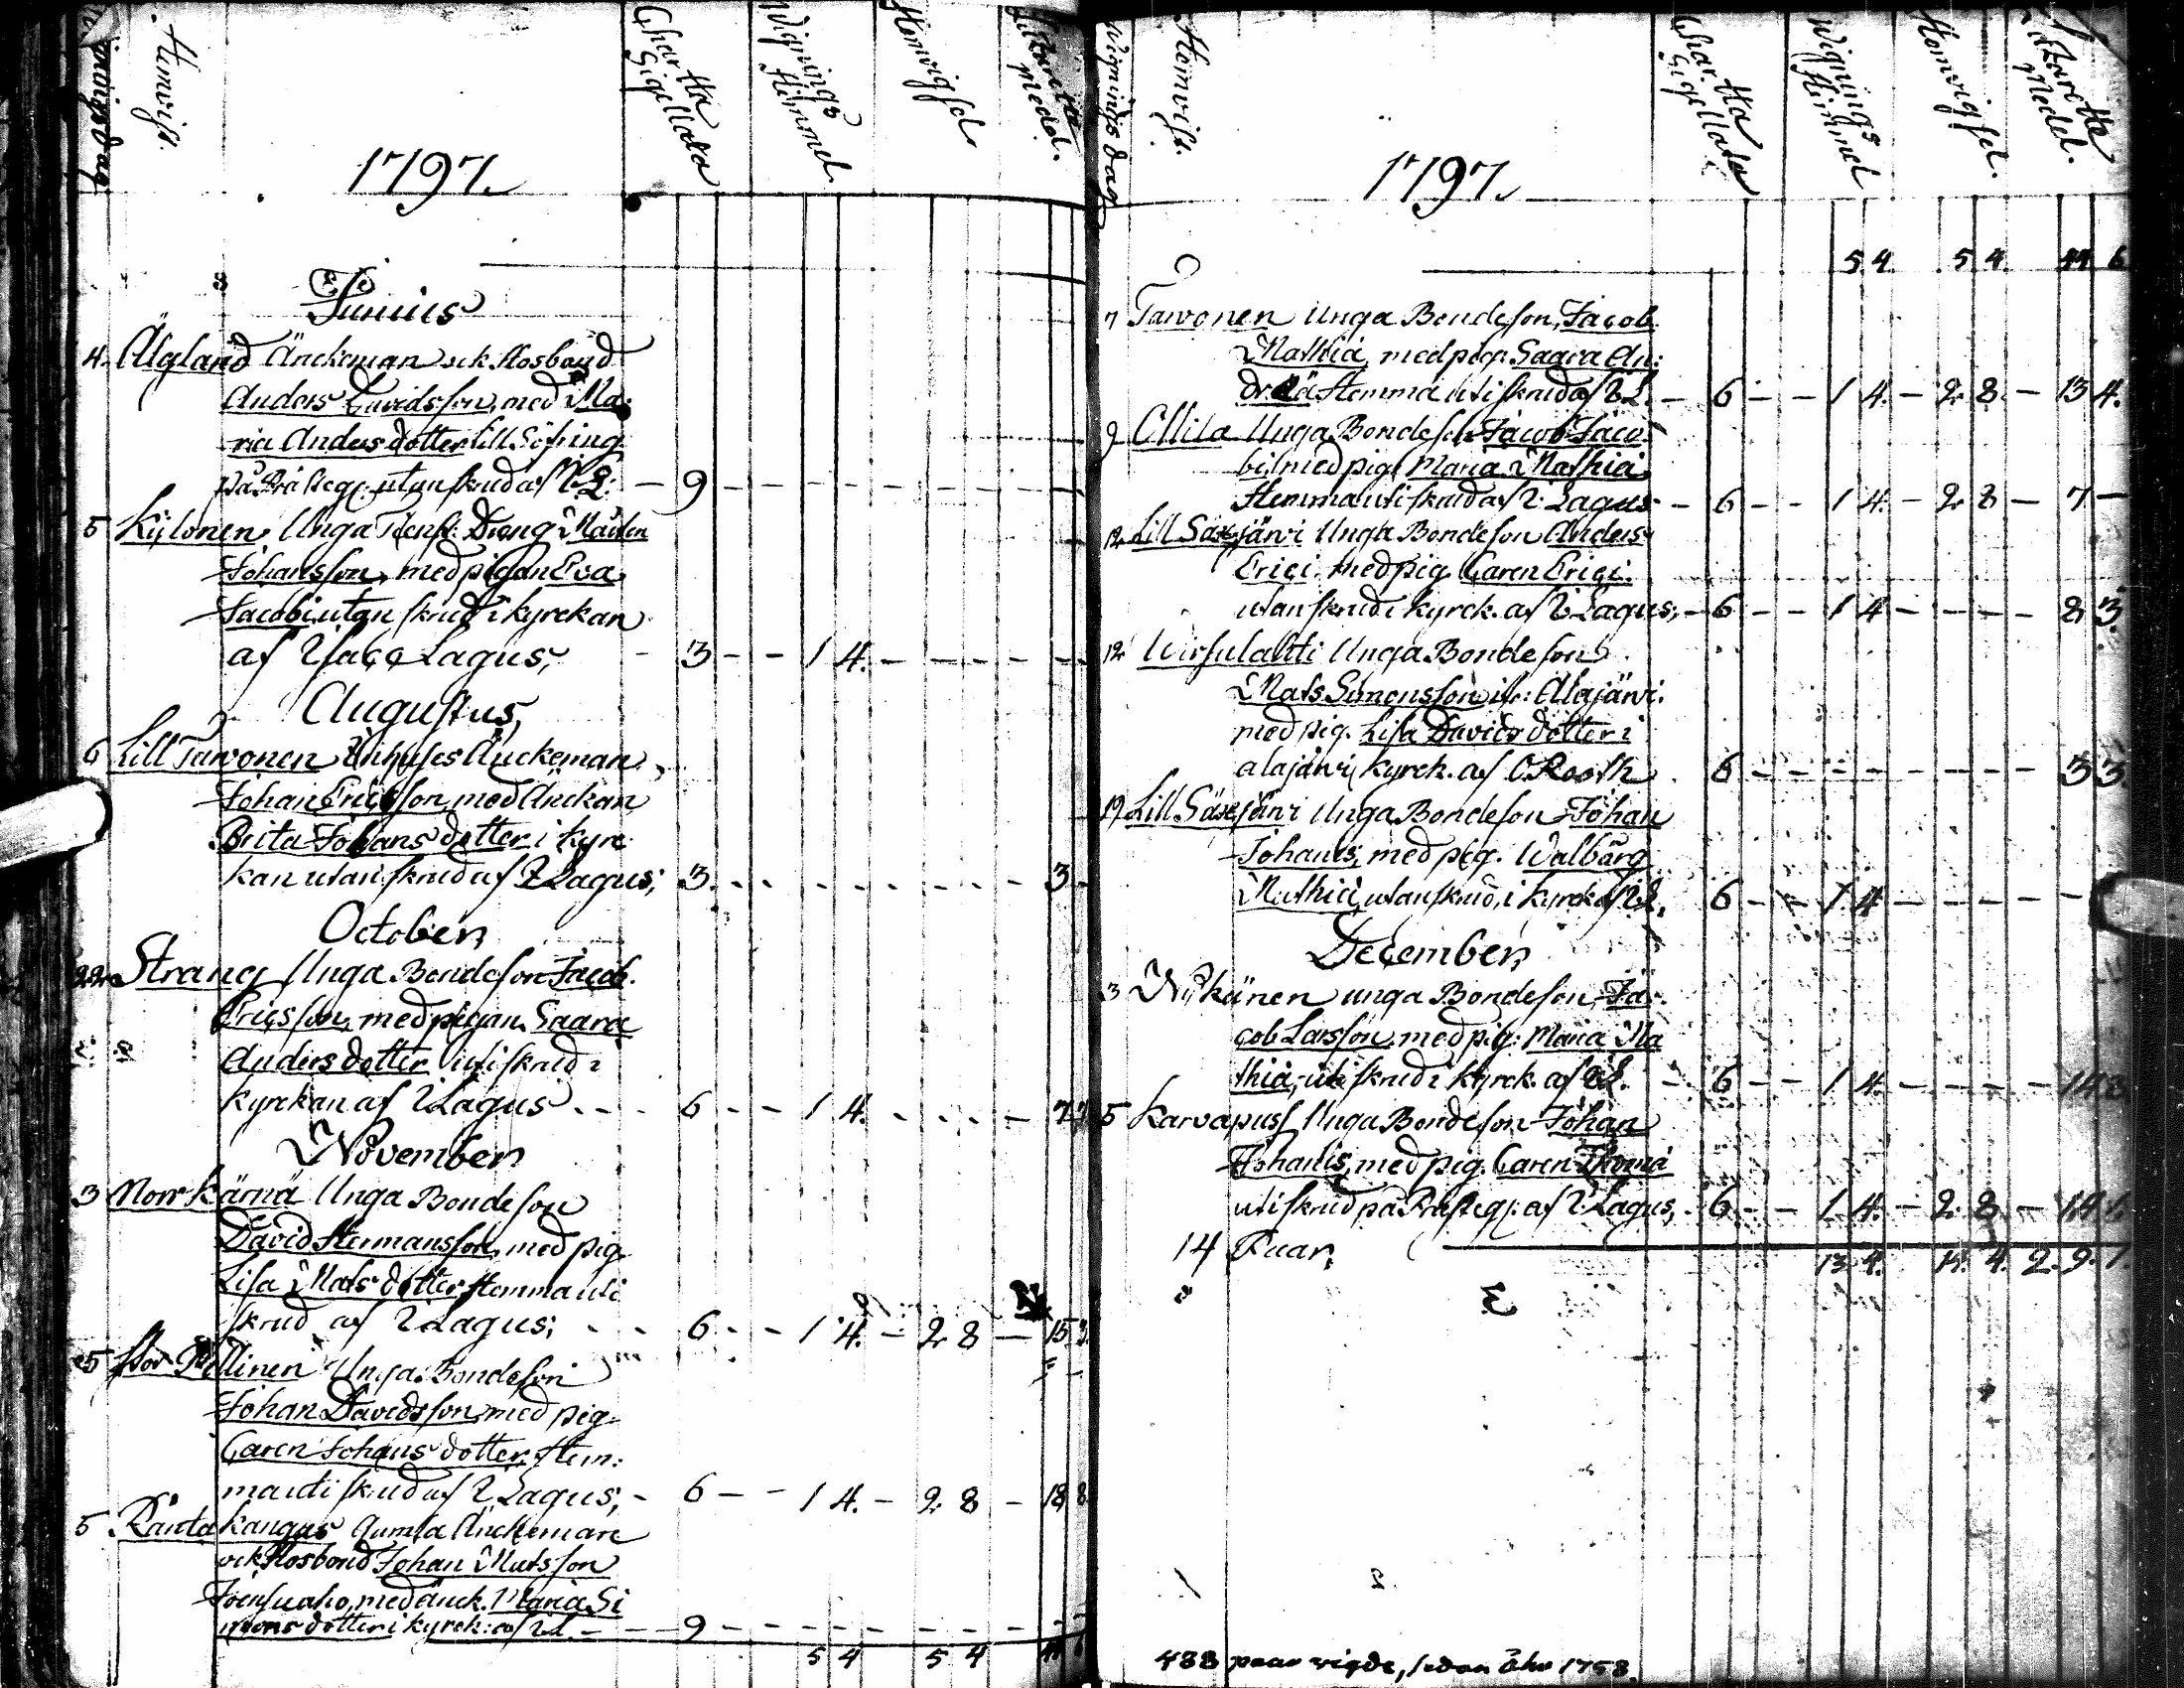 Hemvist.
Chartta Sigillata
Wignings Stämmel
Hemvigsel
Lazaretts Medel.
1797.
Junius
4. Älgland Änckeman och Hosbond
Anders Davidsson, med Ma:
ria Andersdotter Lill
på Prästeg: utan skrud af — 9
5 Kylönen Unga Dräng
Johansson, med pigan Eva
Jacobi utan skrud i kyrckan
af Lagus; - 3 - - 1 4. -
Augustus,
6 Lill Tarvonen Änckeman
Johan Ericsson, med Änckan
Brita Johans dotter i kyrc
kan utan skrud af Lagus; 3. - 3 -
October
22 Strang Unga Bondeson Jacob
Ericsson, med pigan Saara
Anders dotter uti skrud i
kyrckan af Lagus - 6 - - 1 4. - 7
November
3 Norr Kärnä Unga Bondeson
David Hermansson, med pig.
Lisa Mats dotter, Hemma uti
skrud af Lagus; - 6 - - 1 4. - 2 8 — 15 3
5 Stor Pellinen Unga Bondeson
Johan Davidsson, med pig.
Caren Johans dotter, Hem:
ma uti skrud af Lagus, - 6 - - 1 4. - 2 8 - 18 8
5 Ränta kangas Gamla Änckeman
och Hosbond Johan Matsson
med änck. Maria Si
mons dotter i kyrck: af - 9
5 4 5 4
Wignings dag
Hemvist.
Chartta Sigillata
Wignings Stämmel
Hemvigsel.
Lazaretts Medel.
1797.
5 4. 5 4. 6
7 Tarvonen Unga Bondeson, Jacob
Mathiæ, med pig: Saara An:
dreæ Hemma uti skrud af - 6 - - 1 4. - 2 8 - 13 4.
9 Ollila Unga Bondeson Jacob Jaco
bi, med pig. Maria Mathiæ
Hemma uti skrud af Lagus - 6 - - 1 4 - 2 8 — 7 —
12 Lill Säxjärvi Unga Bondeson Anders
Erici. med pig. Caren Erici.
utan skrud i kyrck. af Lagus; - 6 - - 1 4 - 2 3.
12 Wirsulahti Unga Bondeson
Mats Simonsson i Alajärvi.
med pig. Lisa Davids dotter i
alajärvi kyrck. af O. Rooth. 6 - 3 3.
19 Lill Säxjärvi Unga Bondeson Johan
Johanis, med pig. Walbårg
Mathiæ, utan skrud, i kyrck af 6 - - 1 4 -
December
3 Nykänen unga Bondeson, Ja
cob Larsson, med pig: Maria Ma
thiæ, uti skrud i kyrck. af - 6 - - 1 4. - 14
5 Karvapusk Unga Bondeson Johan
Johanis, med pig. Caren Thomæ
uti skrud på Prästeg: af Lagus, - 6 - - 1 4. - 2 8 - 14 6
14 Paar, 13 4. 14. 4. 2. 9. 1.
488 paar vigde, sedan åhr 1758.